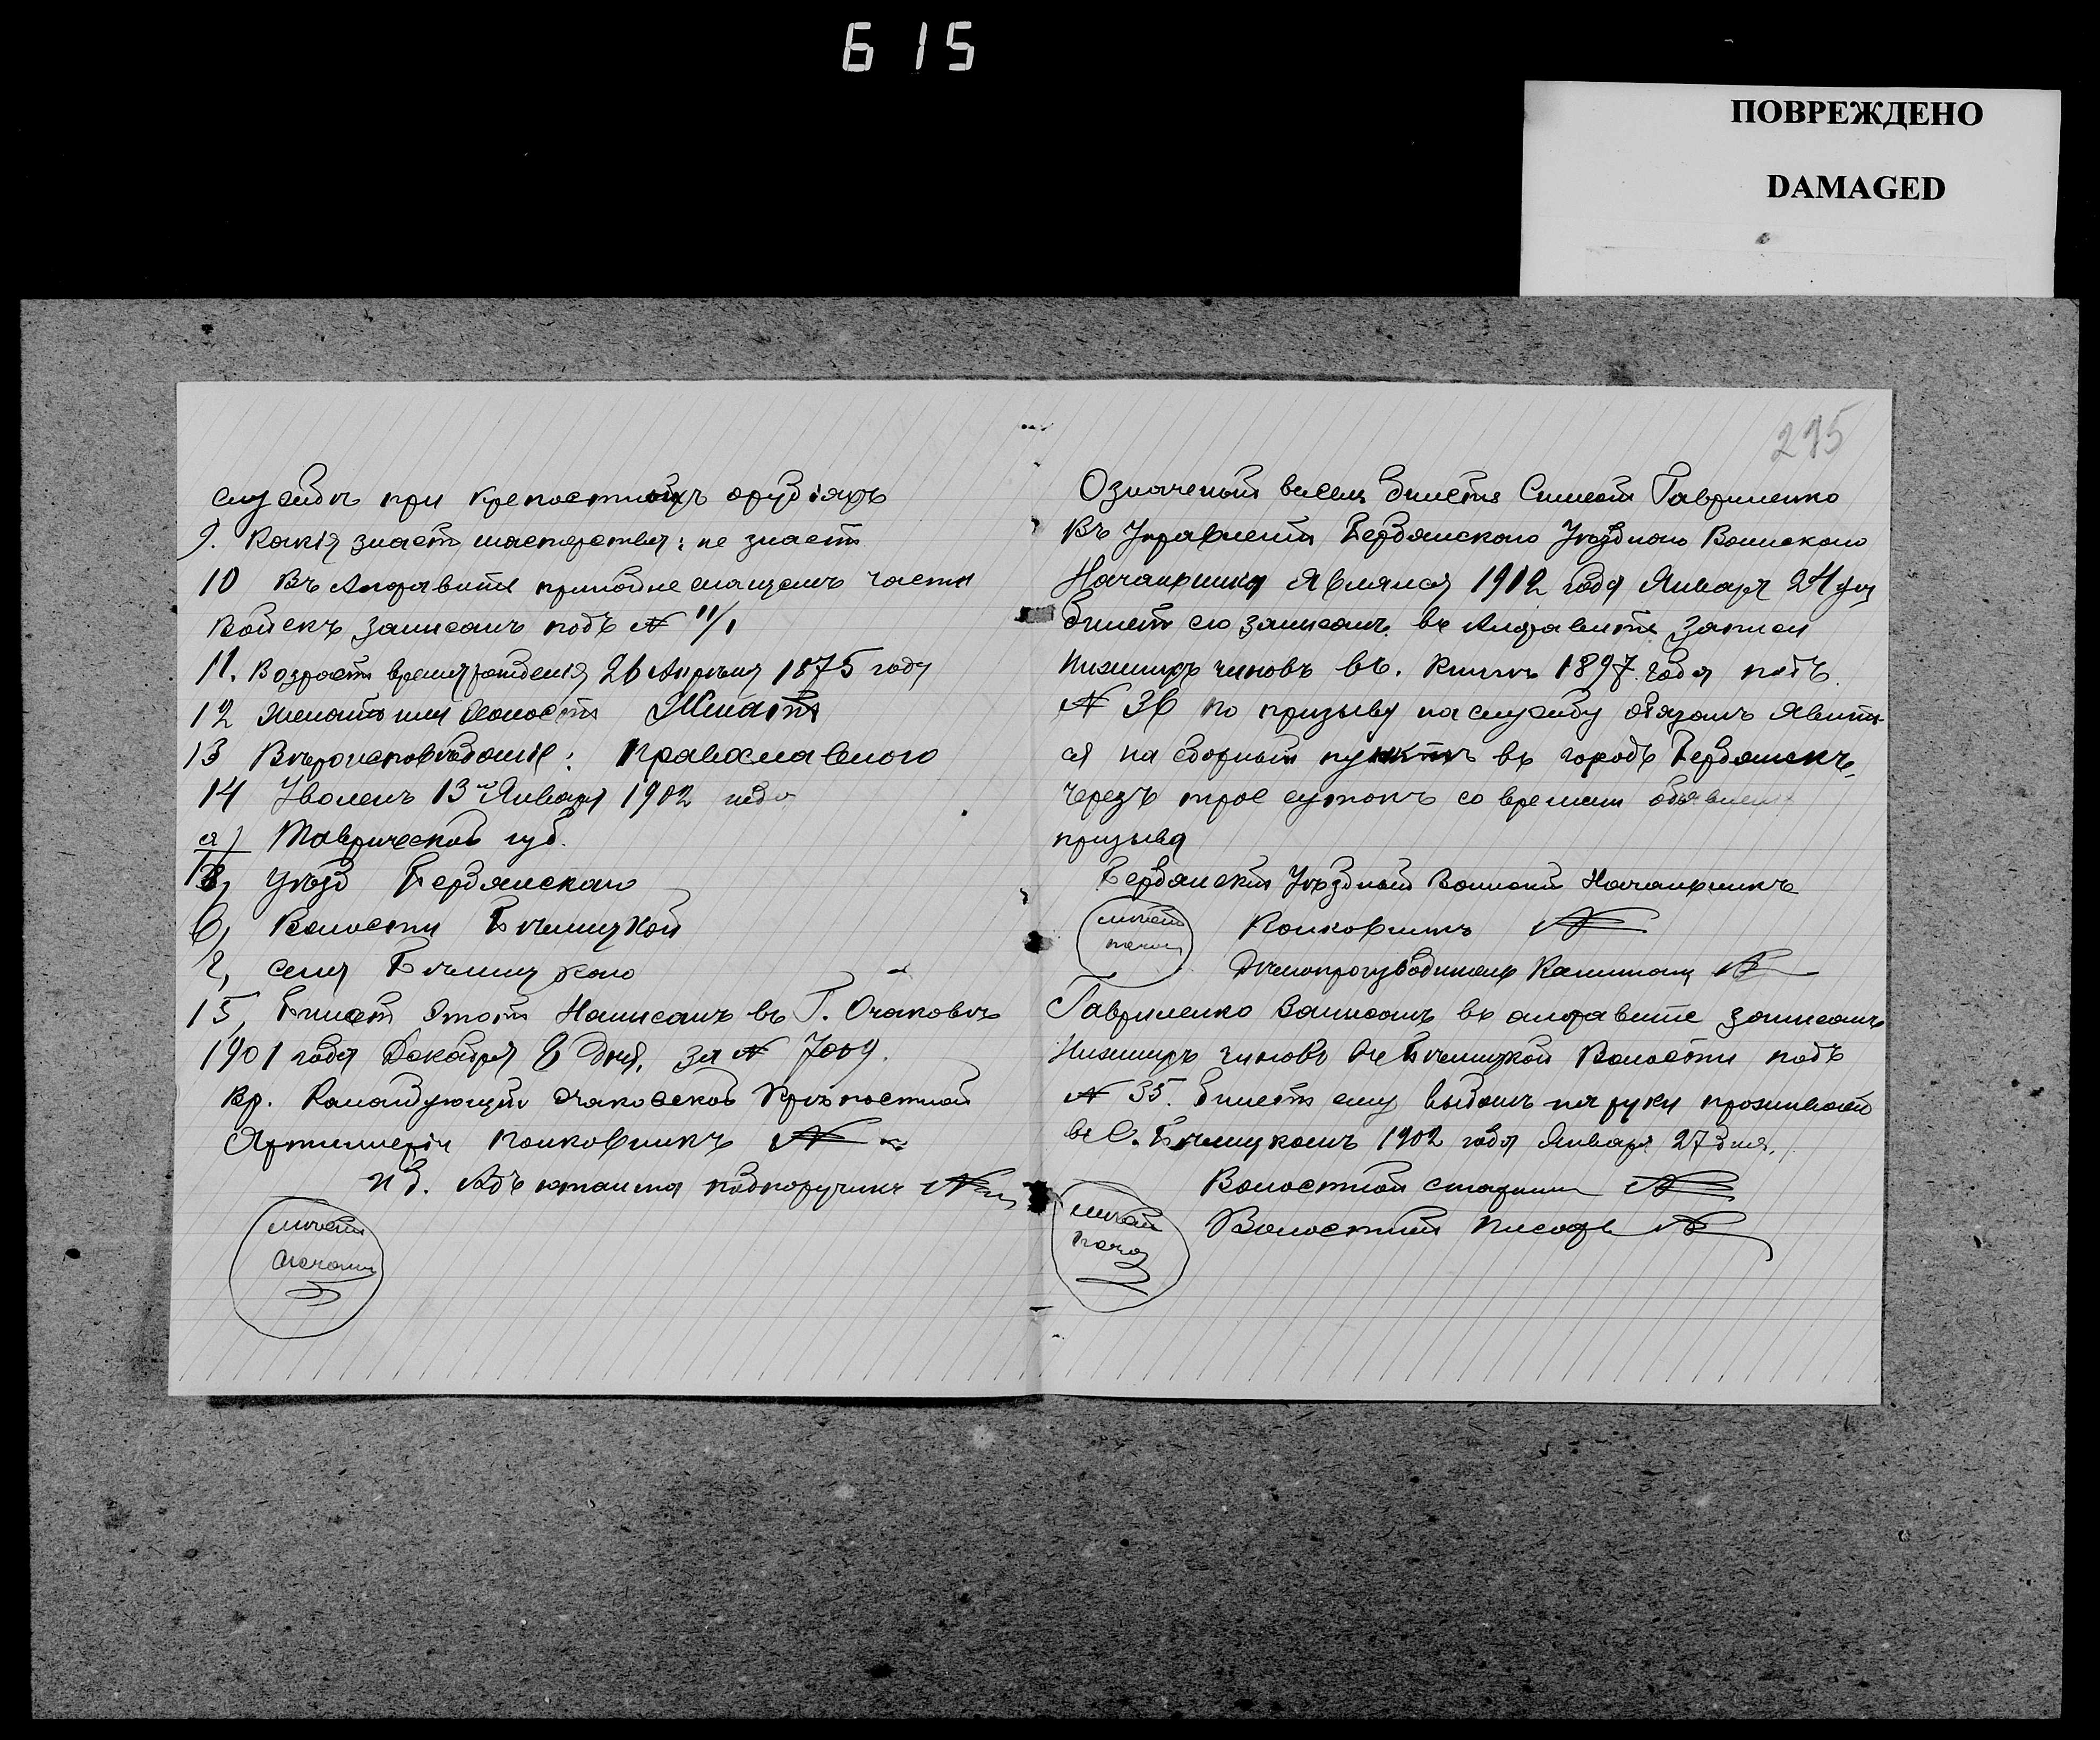 615
ПОВРЕЖДЕНО
DAMAGED
295
службы при крепостныхъ орудіяхъ
9. Какія знаетъ мастерства: не знаетъ
10 Въ Алфавити части
войскъ записанъ подъ № 11/1
11. Возрастъ время рожденія 26 Апрѣля 1875 году
12 Женатъ или холостъ Женатъ
13 Вѣроисповѣданіе: Православного
14 Уволенъ 13го Января 1902 года
а) Таврической губ.
б) уѣзд Бердянского
в) Волости Бѣлицкой
г, села Бѣлицкого
15, Билетъ этотъ Написанъ въ Г. Очаковѣ
1901 года Декабря 8 Дня. за № 7009.
Вр. Командующій Очаковской Крѣпостной
Артиллеріи полковникъ
И д. Адъютанта подпоручикъ
мѣсто
печати
Означеный въсемъ билете Гавриленко
Въ Управленіи Бердянского Уѣздного Воинского
Начальника Являлся 1902 года Января 24 дня
билетъ его записанъ въ Алфавите Записи
Нижнихъ чиновъ въ. книгѣ 1897 года подъ
№ 36 по призыву на службу обязанъ явить-
ся на сборный пунктъ въ городъ Бердянскъ,
Черезъ трое сутокъ со времени объявления
призыва
Бердянскій Уѣздный Воинскій Начальникъ
мѣсто
печати
Полковникъ
Дѣлопроизводитель Капитанъ
Гавриленко Записанъ въ алфавите записанъ
Нижнихъ чиновъ Бѣлицкой Волости подъ
№ 35. Билетъ ему выданъ на руки
въ С. Бѣлицкомъ 1902 года Января 27 дня.
мѣсто
печати
Волостной старшина
Волостный Писарь